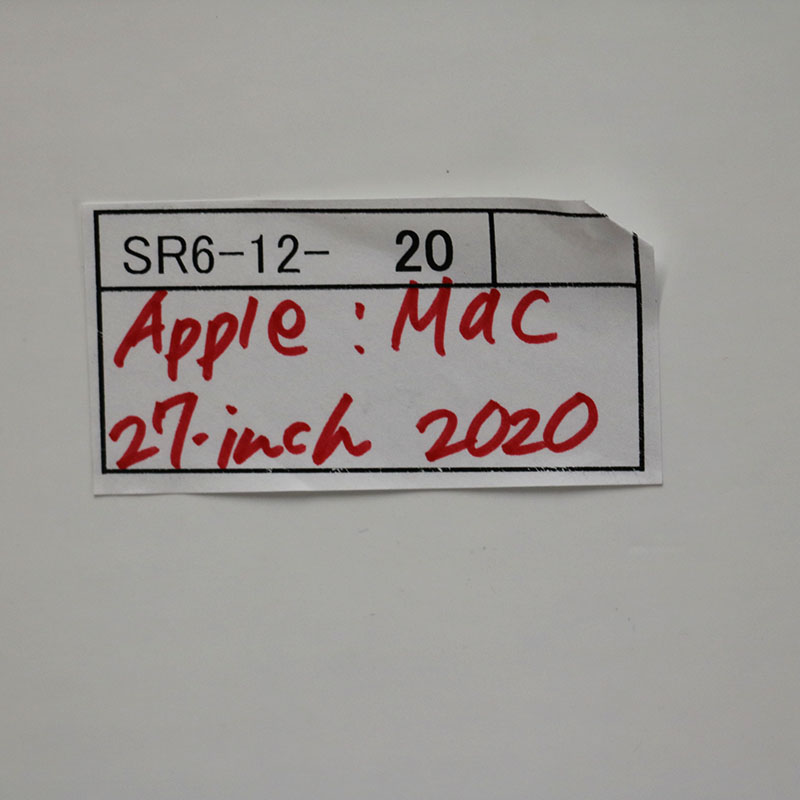 SR6-12- 20
Apple : Mac
27-inch 2020